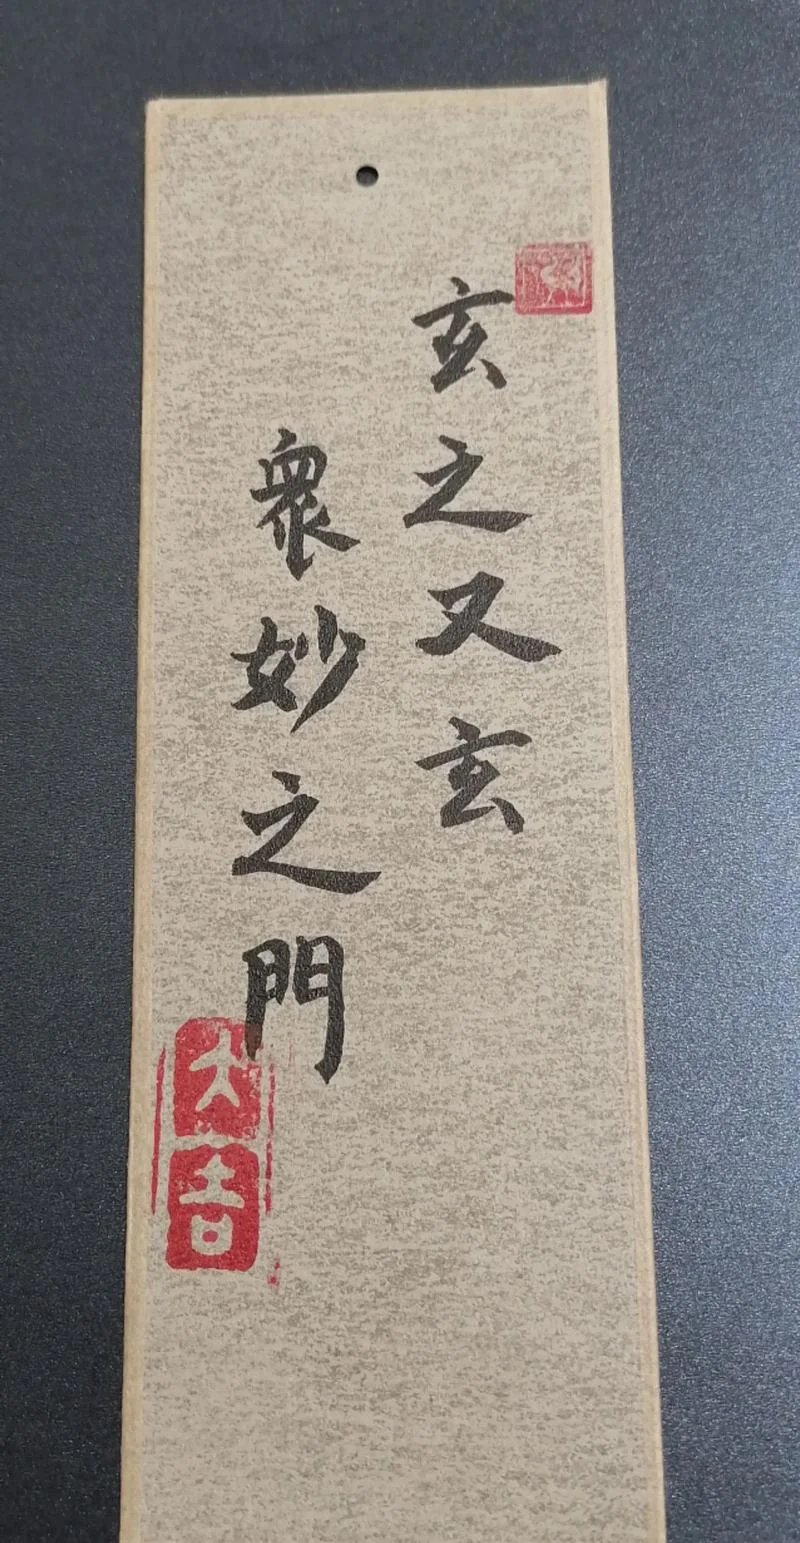 玄之又玄
眾妙之門
大吉